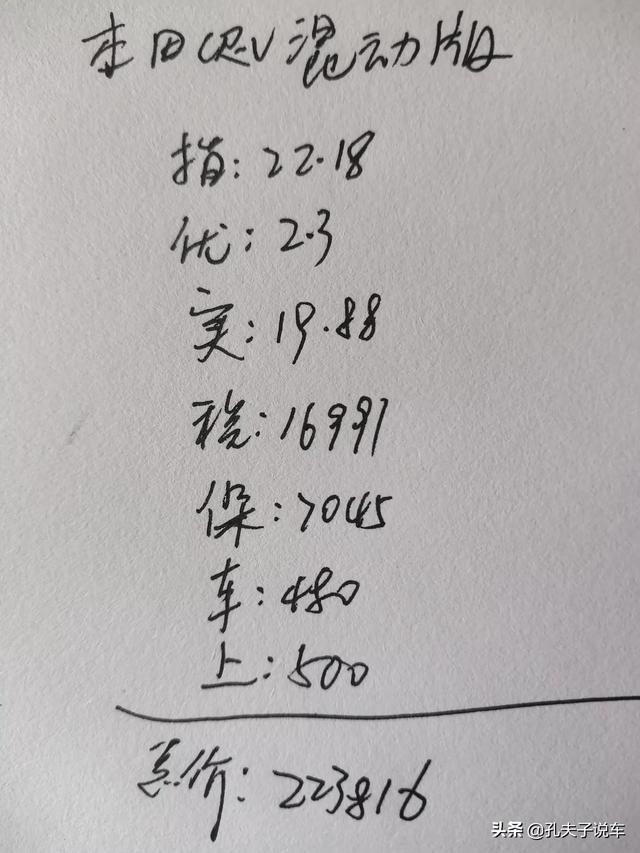 本田CRV混动版
指：22.18
优：2.3
实：19.88
税：16991
保：7045
车：480
上：500
总价：223816
头条 @孔夫子说车